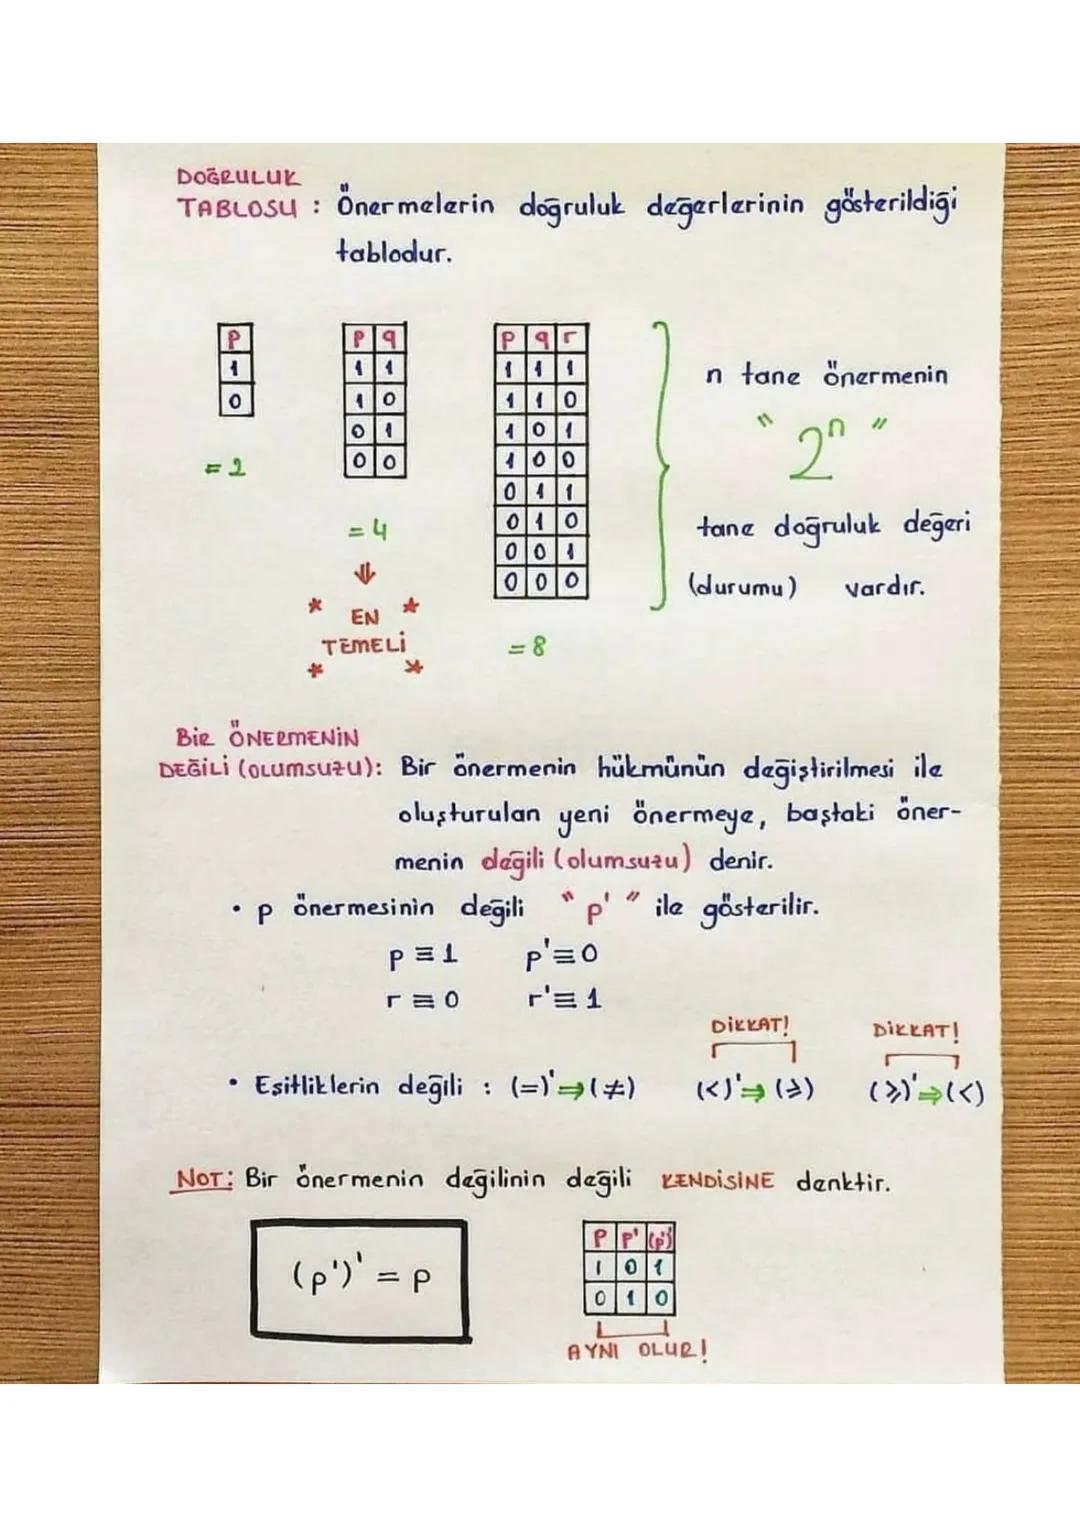 DOĞRULUK
TABLOSU : Önermelerin doğruluk değerlerinin gösterildiği
tablodur.
p
1
0
= 2
p q
1 1
1 0
0 1
0 0
= 4
⇓
* EN *
TEMELİ
* *
p q r
1 1 1
1 1 0
1 0 1
1 0 0
0 1 1
0 1 0
0 0 1
0 0 0
= 8
n tane önermenin
" 2ⁿ "
tane doğruluk değeri
(durumu) vardır.
BİR ÖNERMENİN
DEĞİLİ (OLUMSUZU): Bir önermenin hükmünün değiştirilmesi ile
oluşturulan yeni önermeye, baştaki öner-
menin değili (olumsuzu) denir.
• p önermesinin değili " p' " ile gösterilir.
p ≡ 1 p' ≡ 0
r ≡ 0 r' ≡ 1
DİKKAT! DİKKAT!
• Eşitliklerin değili : (=)' ⇒ (≠) (<)' ⇒ (≥) (≥)' ⇒ (<)
NOT: Bir önermenin değilinin değili KENDİSİNE denktir.
(p')' = p
p p' (p')'
1 0 1
0 1 0
AYNI OLUR!